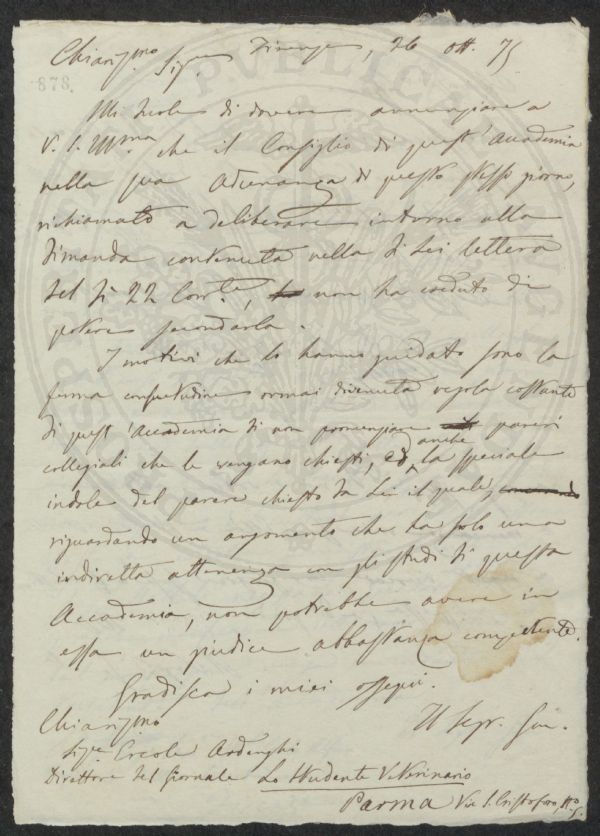 Chiarissmo Sigre Firenze, 26 ott. 75
878.
Mi duole di dovere annunziare a
V. S. Illma che il Consiglio di quest'Accademia
nella sua adunanza di questo stesso giorno,
richiamato a deliberare intorno alla
dimanda contenuta nella di Lei lettera
del dì 22 Corrte, non ha creduto di
potere secondarla.
I motivi che lo hanno guidato sono la
ferma consuetudine ormai divenuta regola costante
di quest'Accademia di non pronunziare pareri
collegiali che le vengano chiesti, ed anche la speciale
indole del parere chiesto da Lei il quale,
riguardando un argomento che ha solo una
indiretta attenenza con gli studi di questa
Accademia, non potrebbe avere in
essa un giudice abbastanza competente.
Gradisca i miei ossequi.
Il Segr.
Chiarissmo
Sigre Ercole Ardenghi
Direttore del Giornale Lo Studente Veterinario
Parma Via S. Cristoforo,